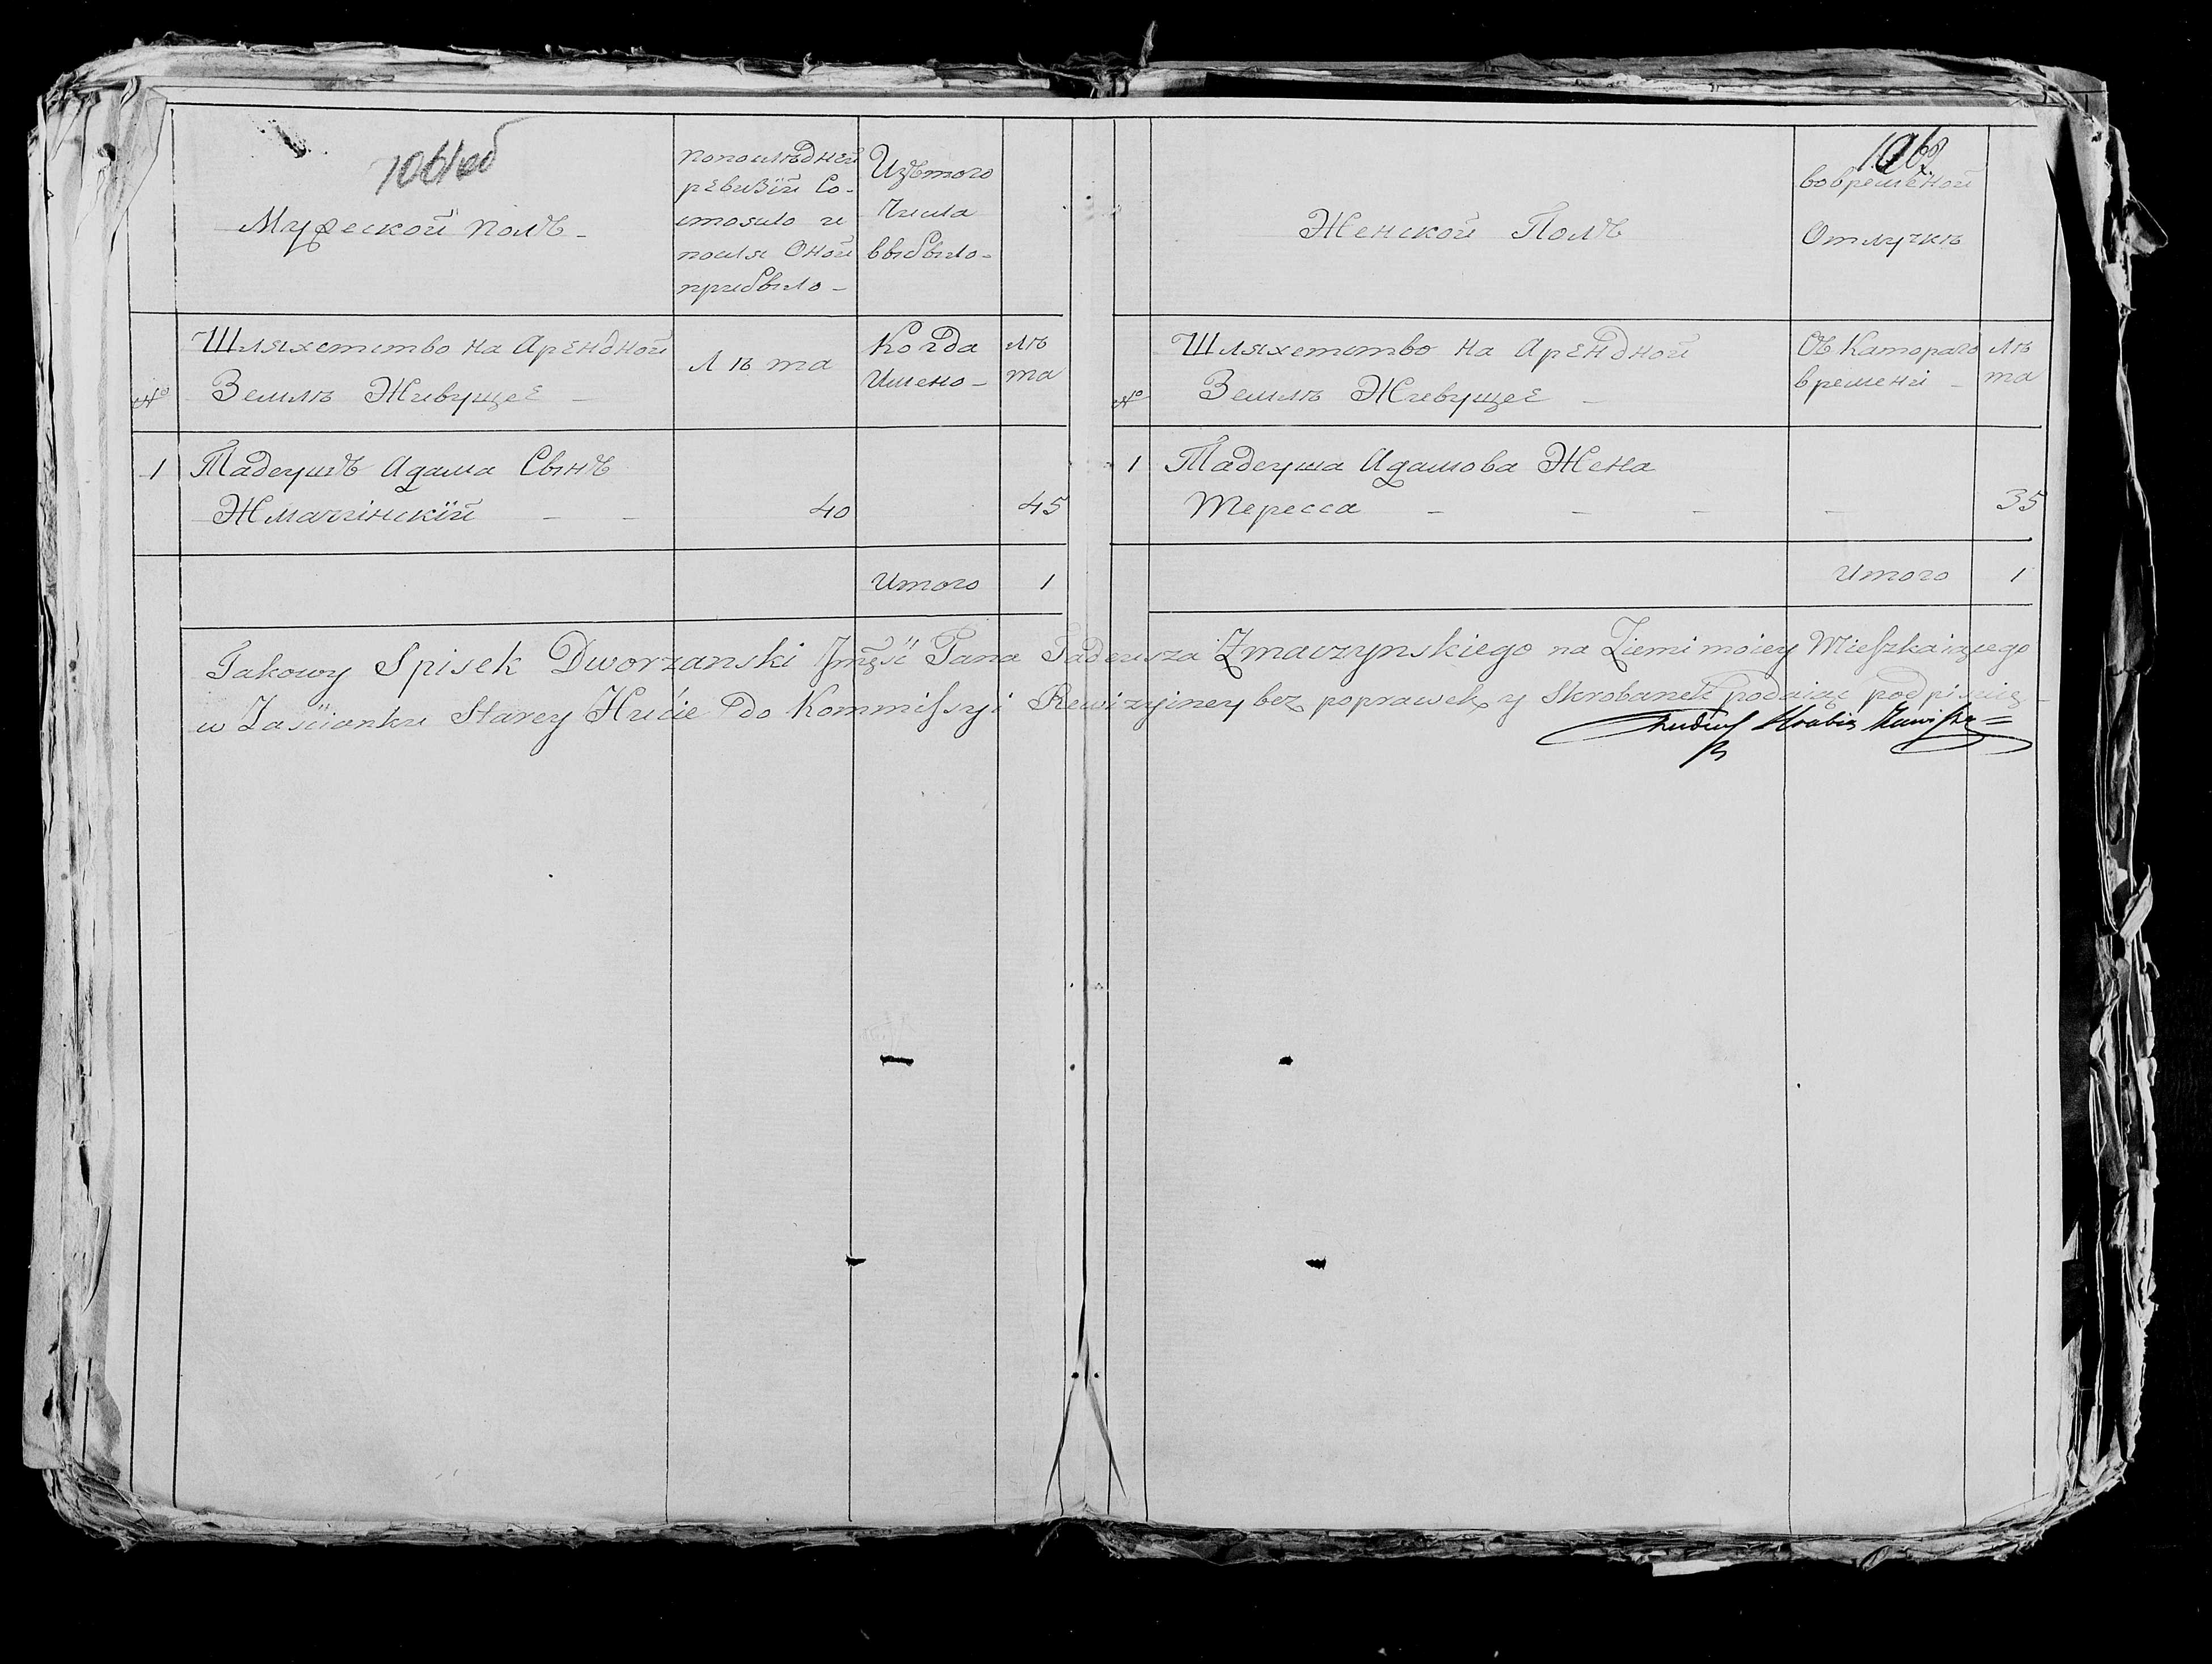 1061об
Мужеской полъ
попоследней ревизїи Со-
стояло и
посля Оной
прибыло
Изътого
числа
выбыло
№
Шляхетство на Арендной
Землѣ Живущеѣ
Лѣта
Когда
Имено
лѣ
та
1 Тадеушъ Адама Сынъ
Жмачинскїй 40 45
Итого 1
1062
Женской Полъ
вовременой
Отлучкѣ
№
Шляхетство на Арендной
Землѣ Живущеѣ
Съ Катораго
времени
лѣ
та
1 Тадеуша Адамова Жена
Тересса 35
Итого 1
Takowy Spisek Dworzanski Jmść Pana Tadeusza Zmaczynskiego na Ziemi moiey Mieszkaiącego
w Zaścianku Starey Hucie do Kommissyi Rewizyiney bez poprawek y Skrobanek podaiąc podpisuię
Hrabia